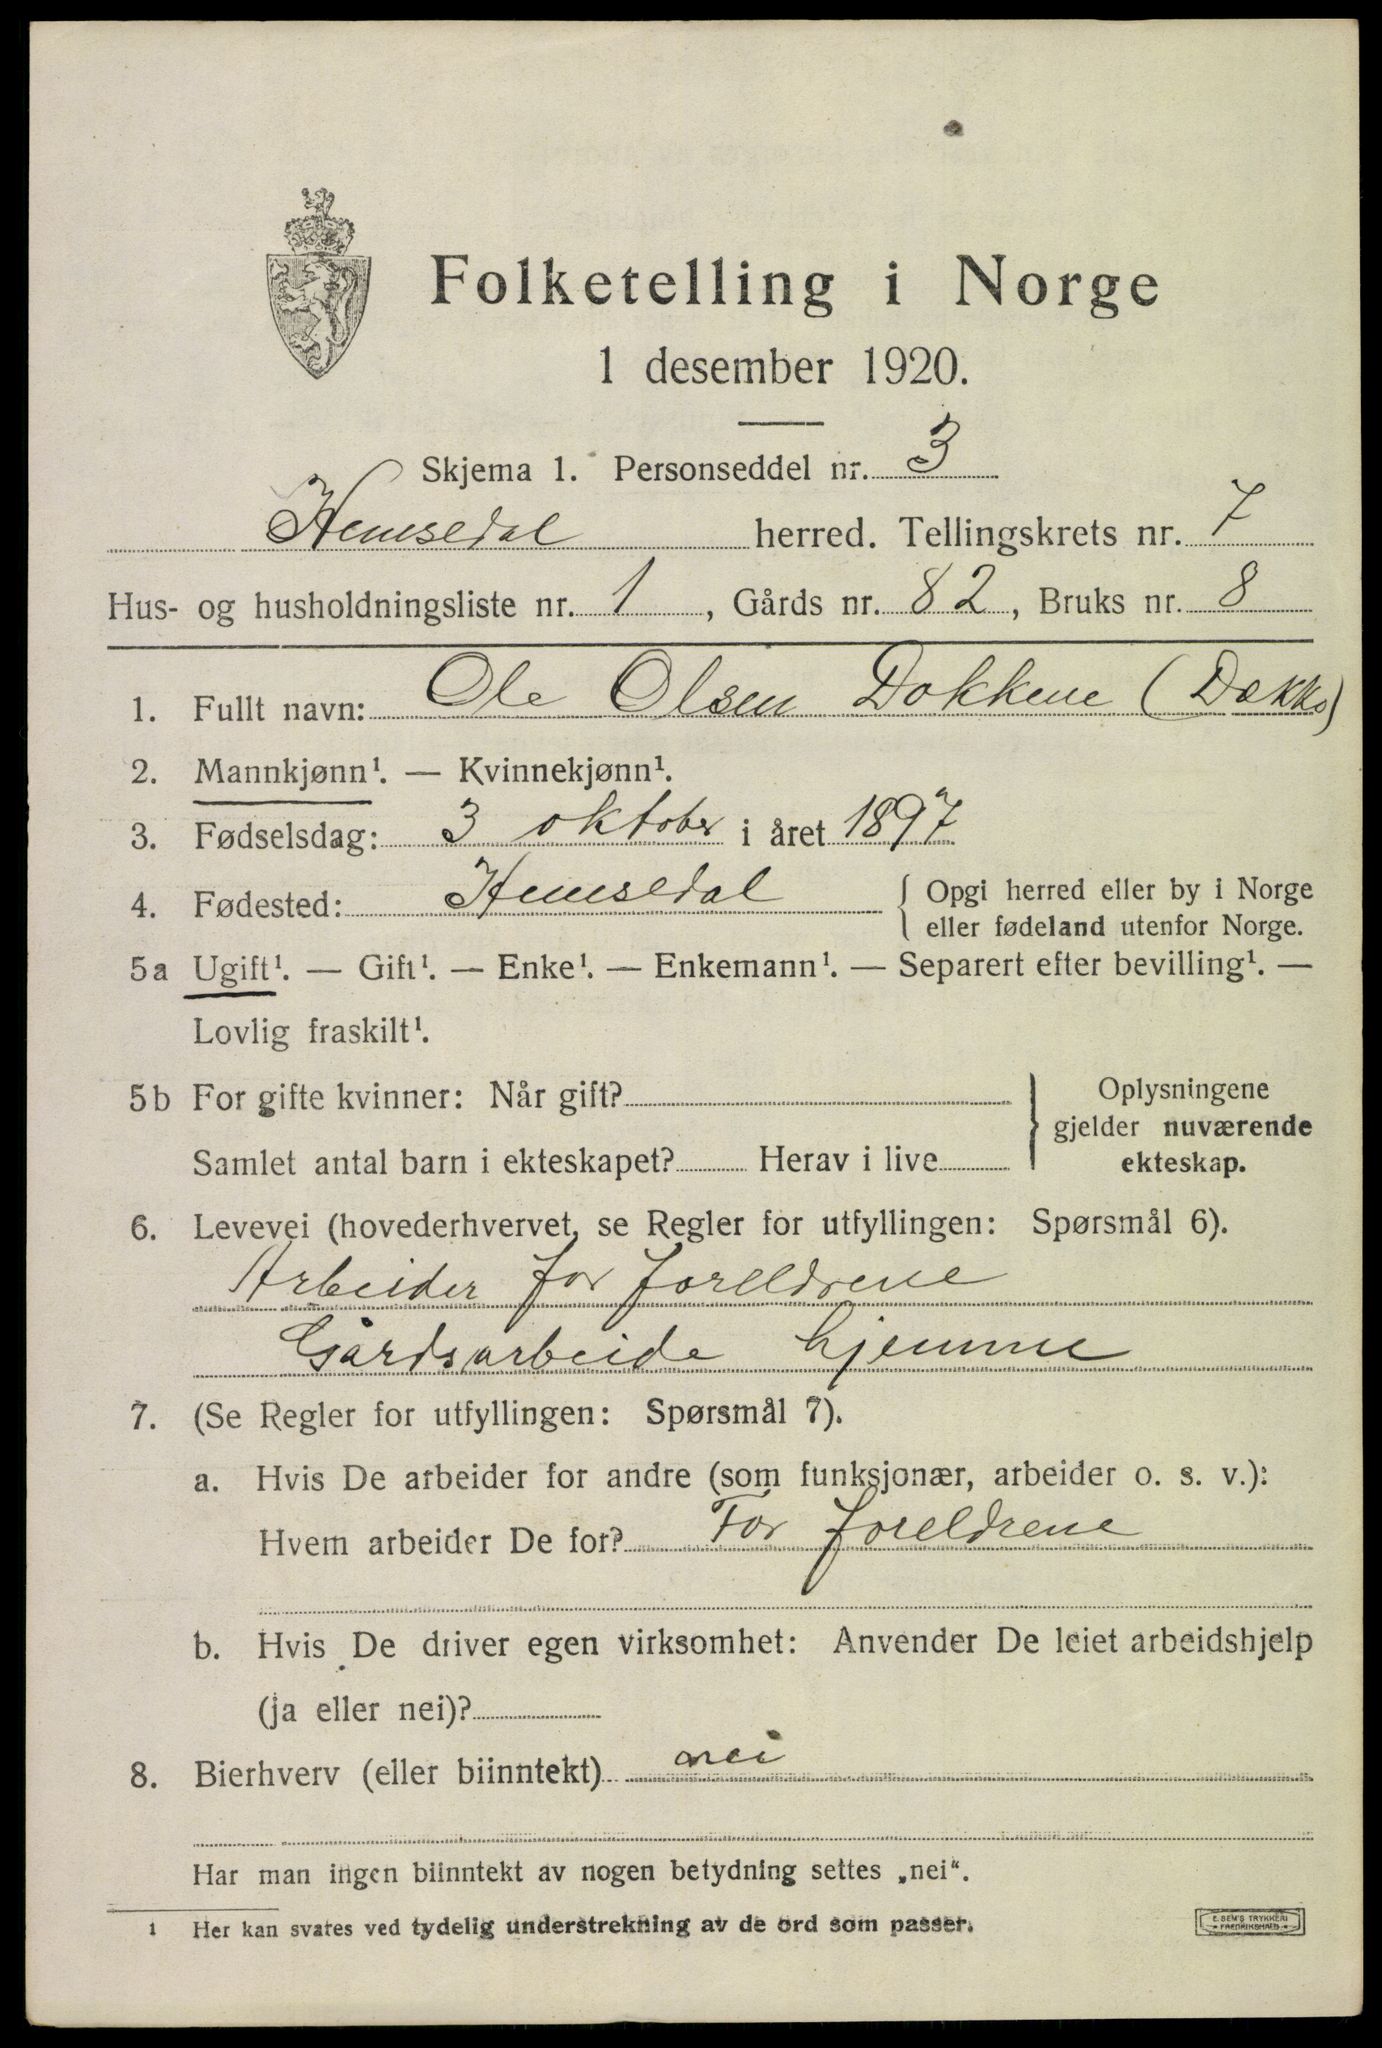 Folketelling i Norge
1 desember 1920.
Skjema 1. Personseddel nr. 3
Hemsedal herred. Tellingskrets nr. 7
Hus- og husholdningsliste nr. 1, Gårds nr. 82, Bruks nr. 8
1. Fullt navn: Ole Olsen Dokkene (Dokko)
2. Mannkjønn¹. — Kvinnekjønn¹.
3. Fødselsdag: 3 oktober i året 1897
4. Fødested: Hemsedal { Opgi herred eller by i Norge
eller fødeland utenfor Norge.
5a Ugift¹. — Gift¹. — Enke¹. — Enkemann¹. — Separert efter bevilling¹. —
Lovlig fraskilt¹.
5b For gifte kvinner: Når gift?
Samlet antal barn i ekteskapet? Herav i live
} Oplysningene
gjelder nuværende
ekteskap.
6. Levevei (hovederhvervet, se Regler for utfyllingen: Spørsmål 6).
Arbeider for foreldrene
Gårdsarbeide hjemme
7. (Se Regler for utfyllingen: Spørsmål 7).
a. Hvis De arbeider for andre (som funksjonær, arbeider o. s. v.):
Hvem arbeider De for? For foreldrene
b. Hvis De driver egen virksomhet: Anvender De leiet arbeidshjelp
(ja eller nei)?
8. Bierhverv (eller biinntekt) nei
Har man ingen biinntekt av nogen betydning settes „nei“.
1 Her kan svares ved tydelig understrekning av de ord som passer.
E. SEM'S TRYKKERI
FREDRIKSHALD